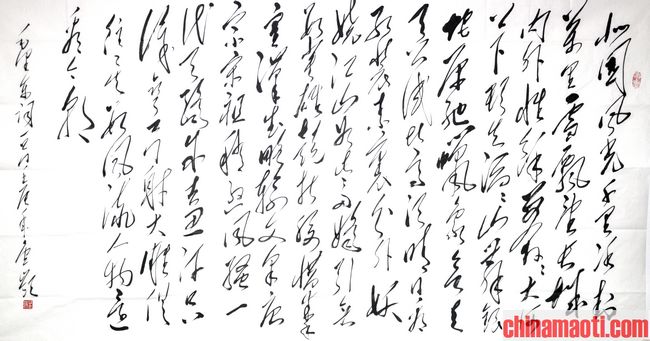 北國风光千里冰封
万里雪飘望长城
内外惟余莽々大河
上下顿失滔々山舞银
蛇原驰蜡象欲与
天公试比高须晴日看
红装素裹分外妖
娆江山如此多娇引无
数英雄竞折腰惜秦
皇汉武略输文采唐
宗宋祖稍逊风骚一
代天骄成吉思汗只
识弯弓射大雕俱
往矣数风流人物还
看今朝
毛泽东词
chinamaoti.com